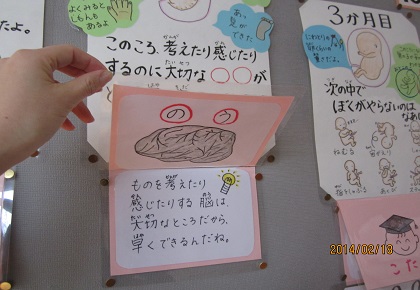 だよ。
よくみると
しもんも
あるよ
あっ
息ができた
このころ、考えたり感じたり
するのに大切な○○が
のう
ものを考えたり
感じたりする脳は、
大切なところだから、
早くできるんだね。
3か月目
次の中で
ぼくがやらないのは
なあ
ねむる
こた
2014/02/18